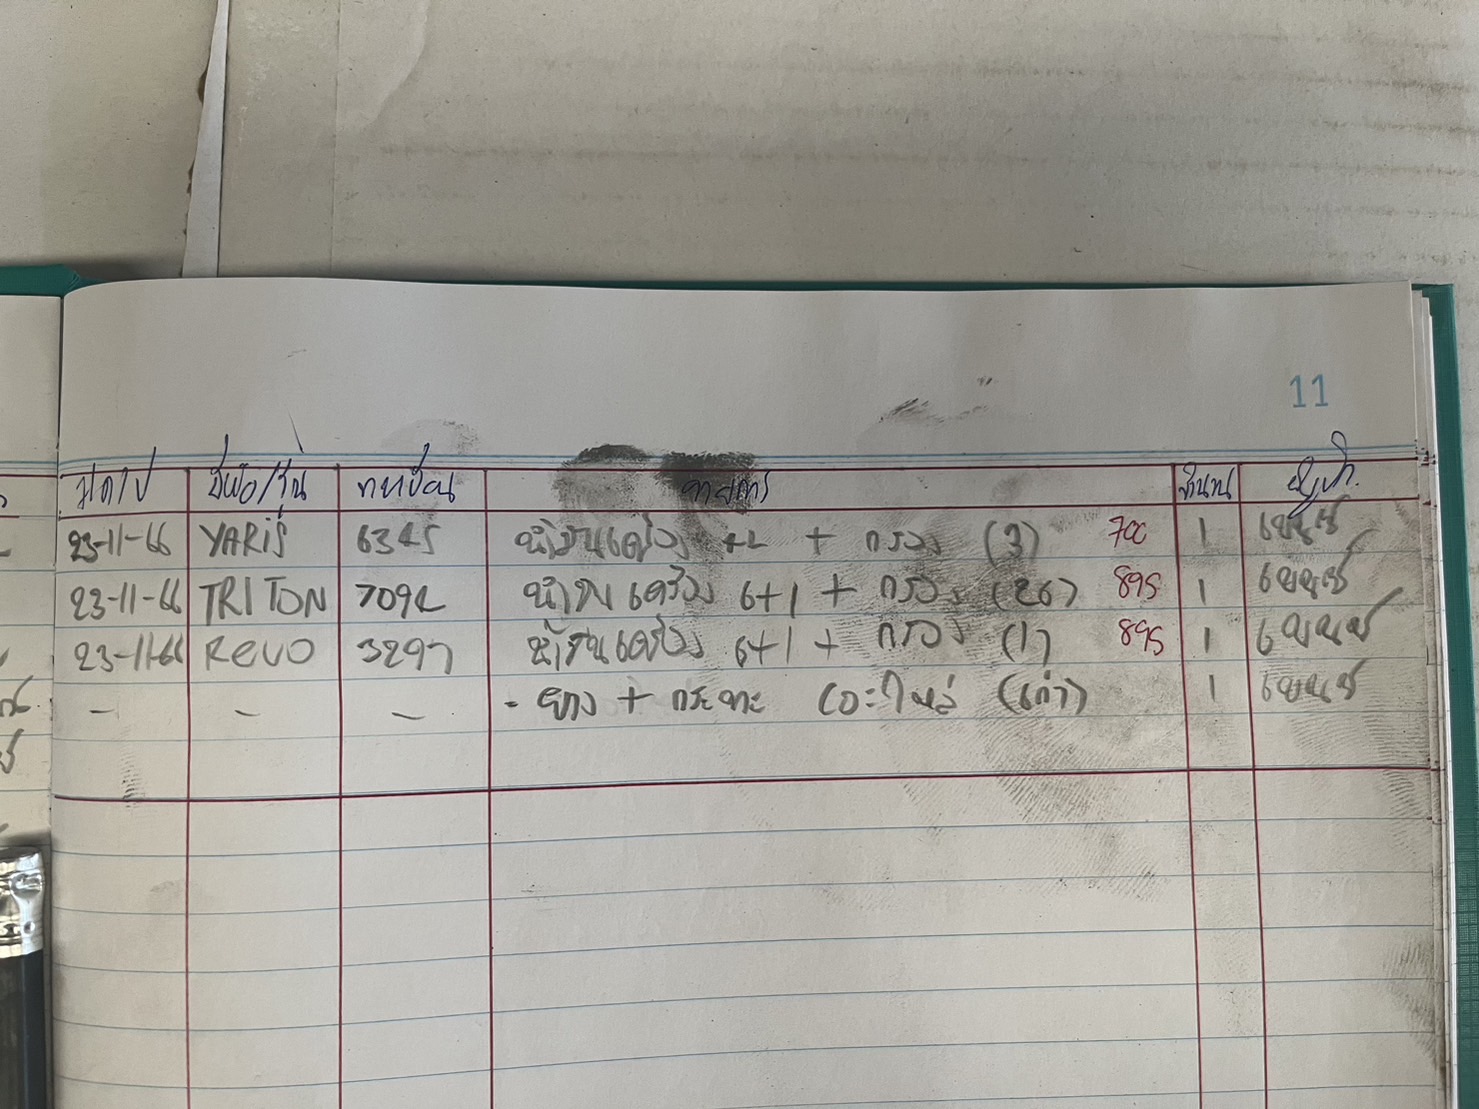 11
ว/ด/ป ยี่ห้อ/รุ่น ทะเบียน รายการ จำนวน ผู้ทำ.
23-11-66 YARIS 6345 น้ำมันเครื่อง + กรอง (3) 700 1
23-11-66 TRITON น้ำมันเครื่อง 6+1 + กรอง (26) 895 1
23-11-66 REVO 3297 น้ำมันเครื่อง 6+1 + กรอง (1) 895 1
- - - - ยาง + กระทะ อะไหล่ (เก่า) 1